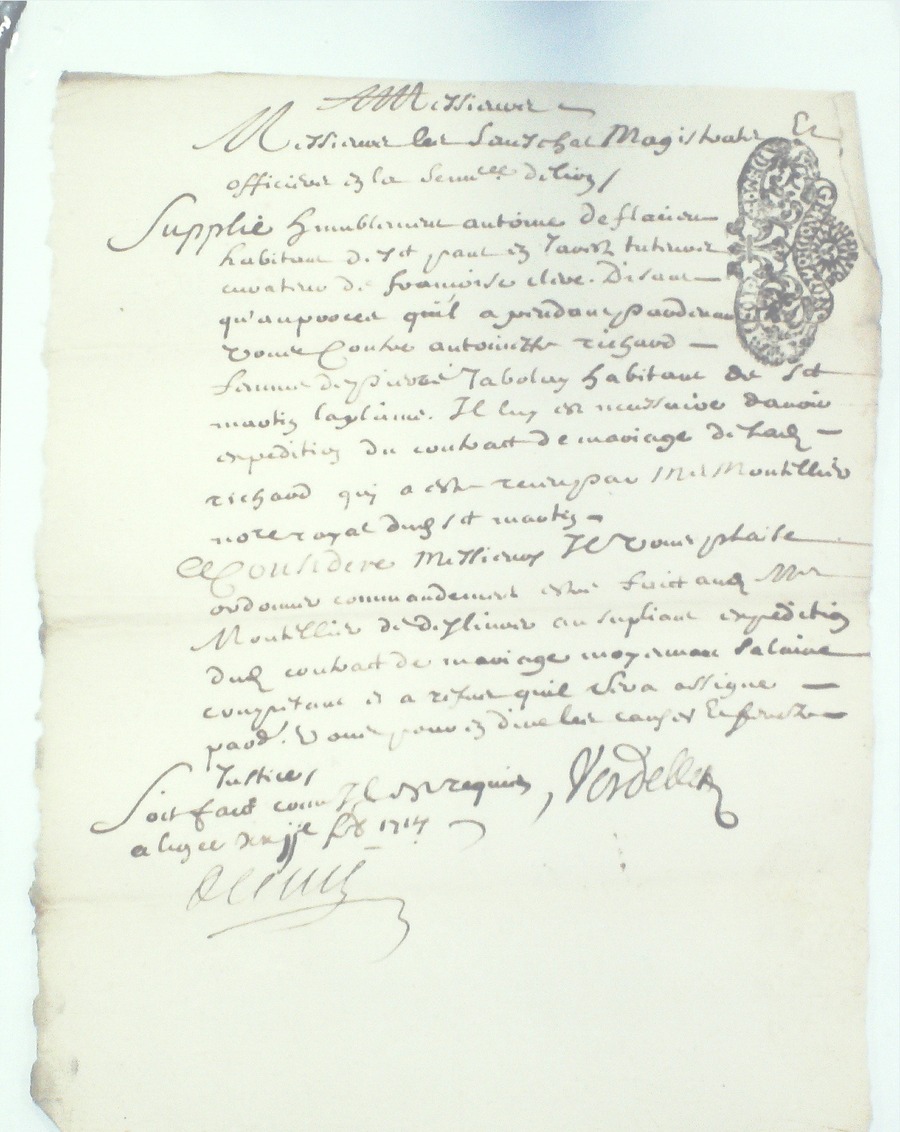 A Messieurs
Messieurs les Seneschal Magistrats Et
officiers en la Senn.ee de lion
Supplie humblement antoine deflacieu
habitant de St paul en Jarest tuteur et
curateur de francoise cleve. Disant
qu'au proces quil a pendant pardevant
vous Contre antoinette richard
femme de pierre Jaboulay habitant de St
martin laplaine. Il luy est necessaire davoir
expedition du contract de mariage de lad
richard qui a esté receu par Me Montellier
no.re royal dud St martin
Ce Considere Messieurs Il vous plaise
ordonner commandement estre faict aud Me
Montellier de deslivrer au supliant expedition
dud contract de mariage moyennant salaire
competant et a refus quil sera assigne
pard. vous pour en dire les causes Et ferez
Justice
Soit faict comm Il est requis, Verdellet
a lyon le 1714